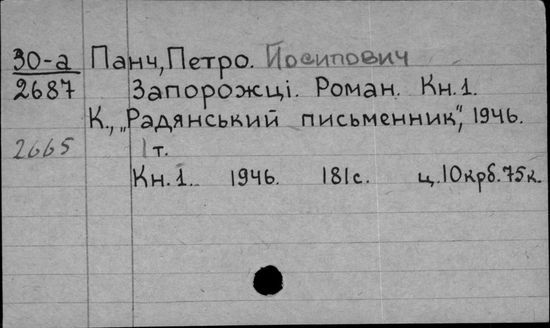 30-а Панч, Петро. Йосипович
2687 Запорожці. Роман. Кн.1.
К., „Радянський письменник", 1946.
2665 1 т.
Кн.1. 1946. 181с. ц.10крб.75к.